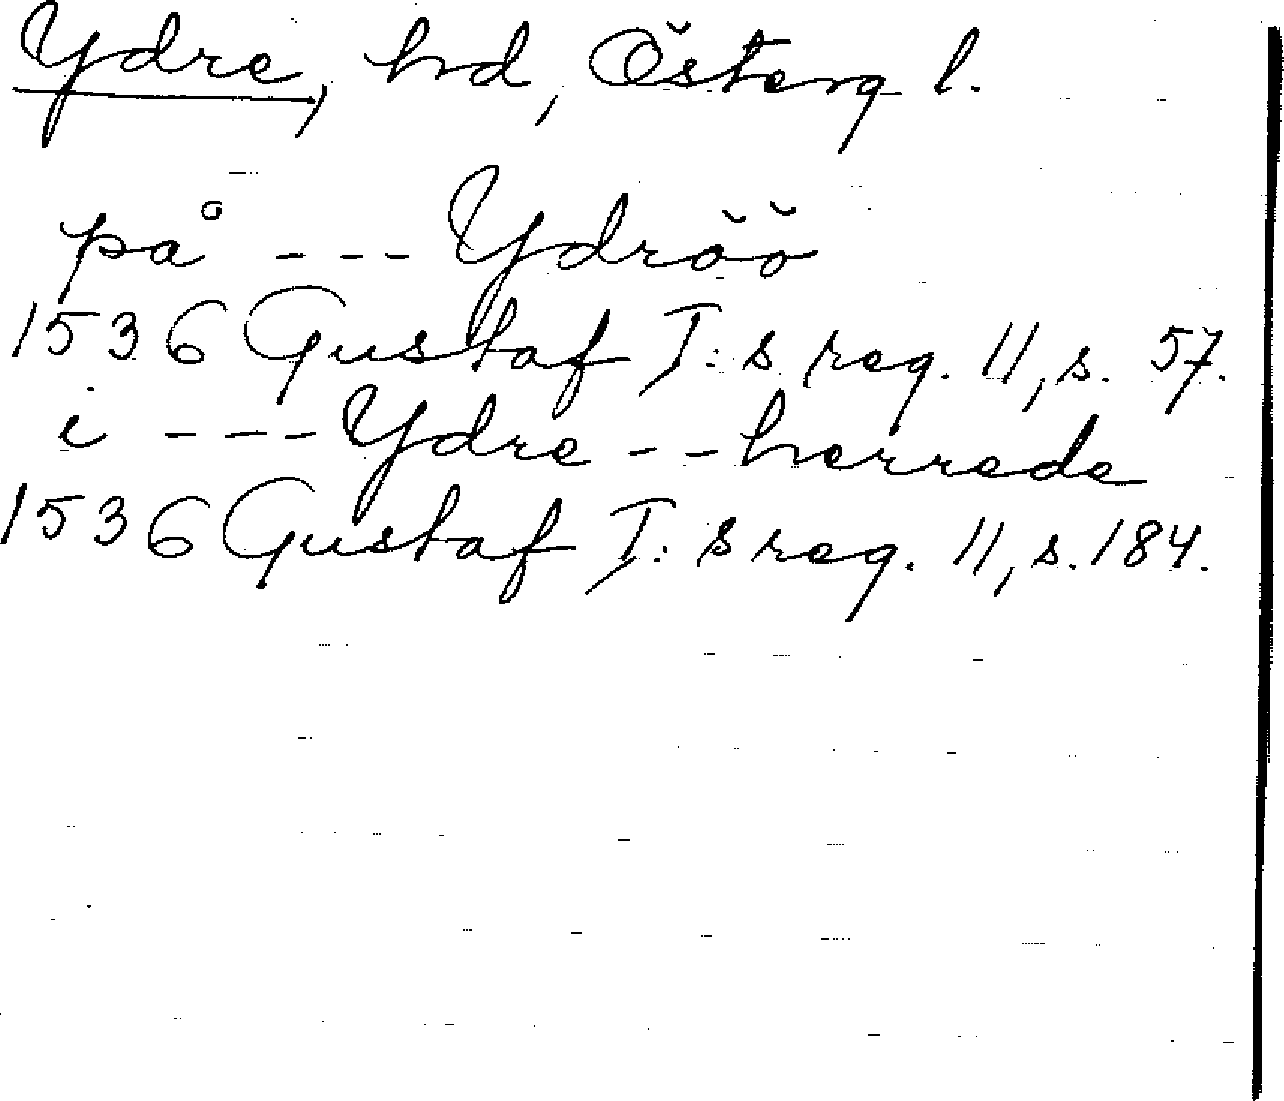 Ydre, hd, Österg l.
på --- Ydröö
1536 Gustaf I:s reg. 11, s. 57.
i --- Ydre -- herrede
1536 Gustaf I:s reg. 11, s. 184.